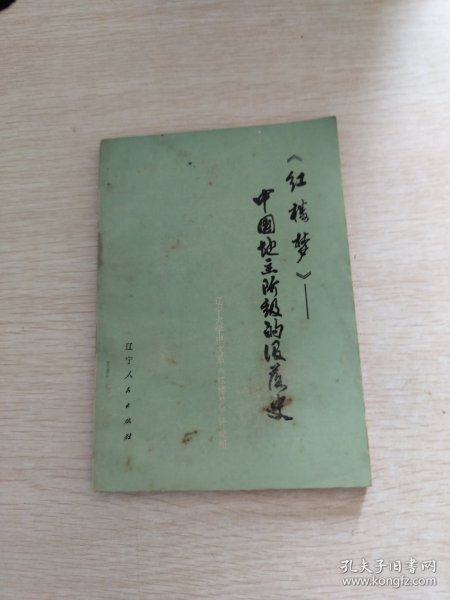 《红楼梦》——
中国地主阶级的没落史
辽宁人民出版社
孔夫子旧书网
www.kongfz.com